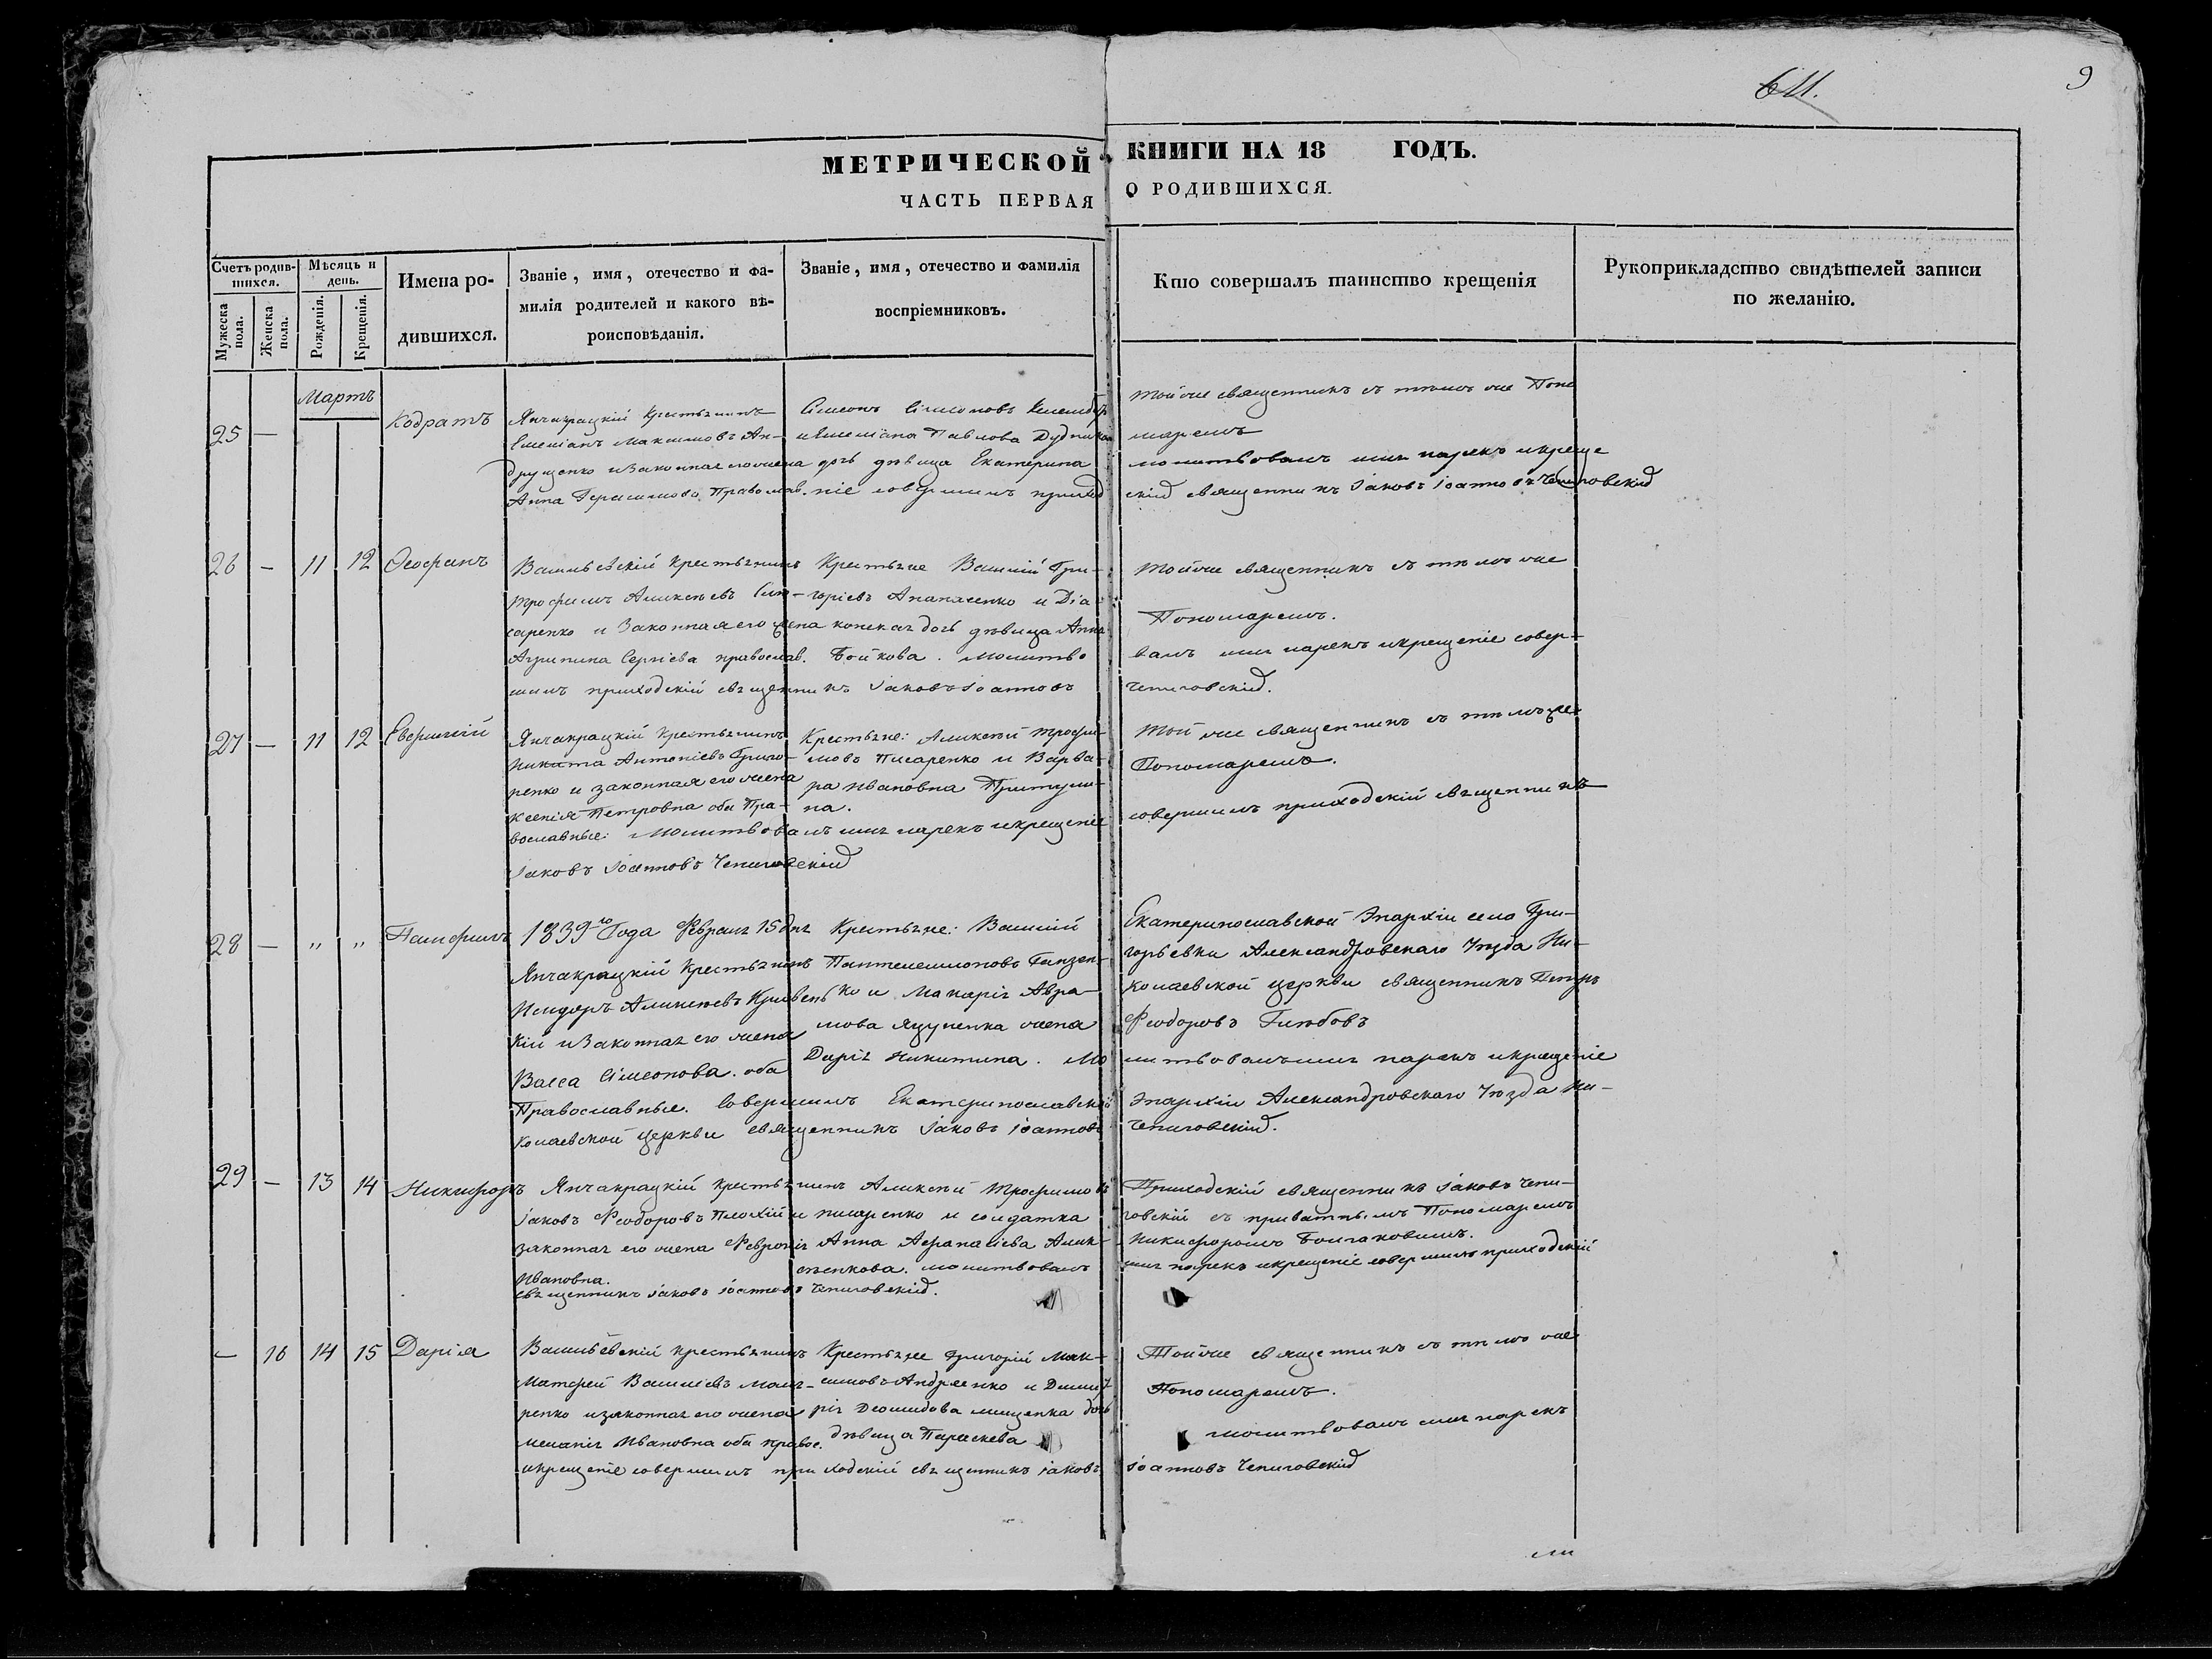 9
МЕТРИЧЕСКОЙ КНИГИ НА 18 ГОДЪ.
ЧАСТЬ ПЕРВАЯ О РОДИВШИХСЯ.
Счетъ родив-
шихся.
Мужеска пола.
Женска пола.
Мѣсяцъ и день.
Рожденія.
Крещенія.
Имена ро-
дившихся.
Званіе, имя, отечество и фа-
милія родителей и какого вѣ-
роисповѣданія.
Званіе, имя, отечество и фамилія
воспріемниковъ.
Кто совершалъ таинство крещенія
Рукоприкладство свидѣтелей записи
по желанію.
Мартъ
25 — Кодратъ
Янчакрацкій Крестьянинъ
Емеліанъ Максимовъ Ан-
друщенко и законная его жена
Анна Герасимова, Православ.
Сімеонъ Сімеоновъ
и Емеліана Павлова Дудника
дочь дѣвица Екатерина
ніе совершилъ приход
Той же священникъ съ тѣмъ же Поно
маремъ
молитвовалъ имя нарекъ и креще
скій священникъ Іаковъ Іоанновъ Чепиговскій
26 — 11 12 Ѳеофанъ
Васильевскій Крестьянинъ
Трофимъ Алексѣевъ Слю-
саренко и Законная его жена
Агрипина Сергіева православ.
шилъ приходскій священникъ Іаковъ Іоанновъ
Крестьяне Василій Гри-
горіевъ Апанасенко и Діа
конская дочь дѣвица Анна
Бойкова. Молитво
Той же священникъ съ тѣмъ же
Пономаремъ.
валъ имя нарекъ и крещеніе совер-
Чепиговскій.
27 — 11 12 Евфимій
Янчакрацкій Крестьянинъ
Никита Антоніевъ Григо-
ренко и законная его жена
Ксенія Петровна оба Пра-
вославные: Молитвовалъ имя нарекъ и крещеніе
Іаковъ Іоанновъ Чепиговскій
Крестьяне: Алексѣй Трофи-
мовъ Писаренко и Варва-
ра Ивановна Притули-
на.
Той же священникъ съ тѣмъ же
Пономаремъ.
совершилъ приходскій священникъ
28 — " " Памфилъ
1839го Года Февраля 15 дня
Янчакрацкій Крестьянинъ
Исидоръ Алексѣевъ Кривень
кій и Законная его жена
Васса Сімеонова. оба
Православные. Совершилъ Екатеринославской
колаевской церкви священникъ Іаковъ Іоанновъ
Крестьяне: Василій
Пантелеимоновъ Ганзен-
ко и Макарія Авра-
мова Яцуненка жена
Дарія Никитина. Мо
Екатеринославской Эпархіи село Гри-
горьевки Александровскаго Уѣзда Ни-
колаевской церкви священникъ Петръ
Феодоровъ Глюбовъ
литвовалъ имя нарекъ и крещеніе
Эпархіи Александровскаго Уѣзда Ни-
Чепиговскій.
29 — 13 14 Никифоръ
Янчакрацкій крестьянинъ
Іаковъ Феодоровъ Плохій и
законная его жена Февронія
Ивановна.
священникъ Іаковъ Іоанновъ Чепиговскій.
Алексѣй Трофимовъ
писаренко и солдатка
Анна Афанасіева Алек-
сѣенкова. молитвовалъ
Приходскій священникъ Іаковъ Чепи-
говскій съ приватнымъ Пономаремъ
Никифоромъ Булгаковымъ.
имя нарекъ и крещеніе совершилъ приходскій
— 16 14 15 Дарія
Васильевскій крестьянинъ
Матфей Василіевъ Маля-
ренко и законная его жена
Меланія Ивановна оба правос.
и крещеніе совершилъ приходскій священникъ Іаковъ
Крестьяне Григорій Мак-
симовъ Андреенко и Димит
рія Деомидова мищенка дочь
дѣвица Параскева
Той же священникъ съ тѣмъ же
Пономаремъ.
молитвовалъ имя нарекъ
Іоанновъ Чепиговскій